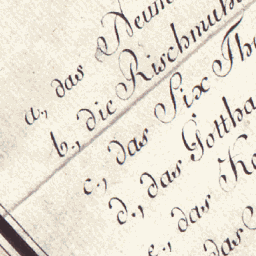 a., das Neum
b., die Rischmuth
c., das Six Th
d., das Gottha
e., das K
das